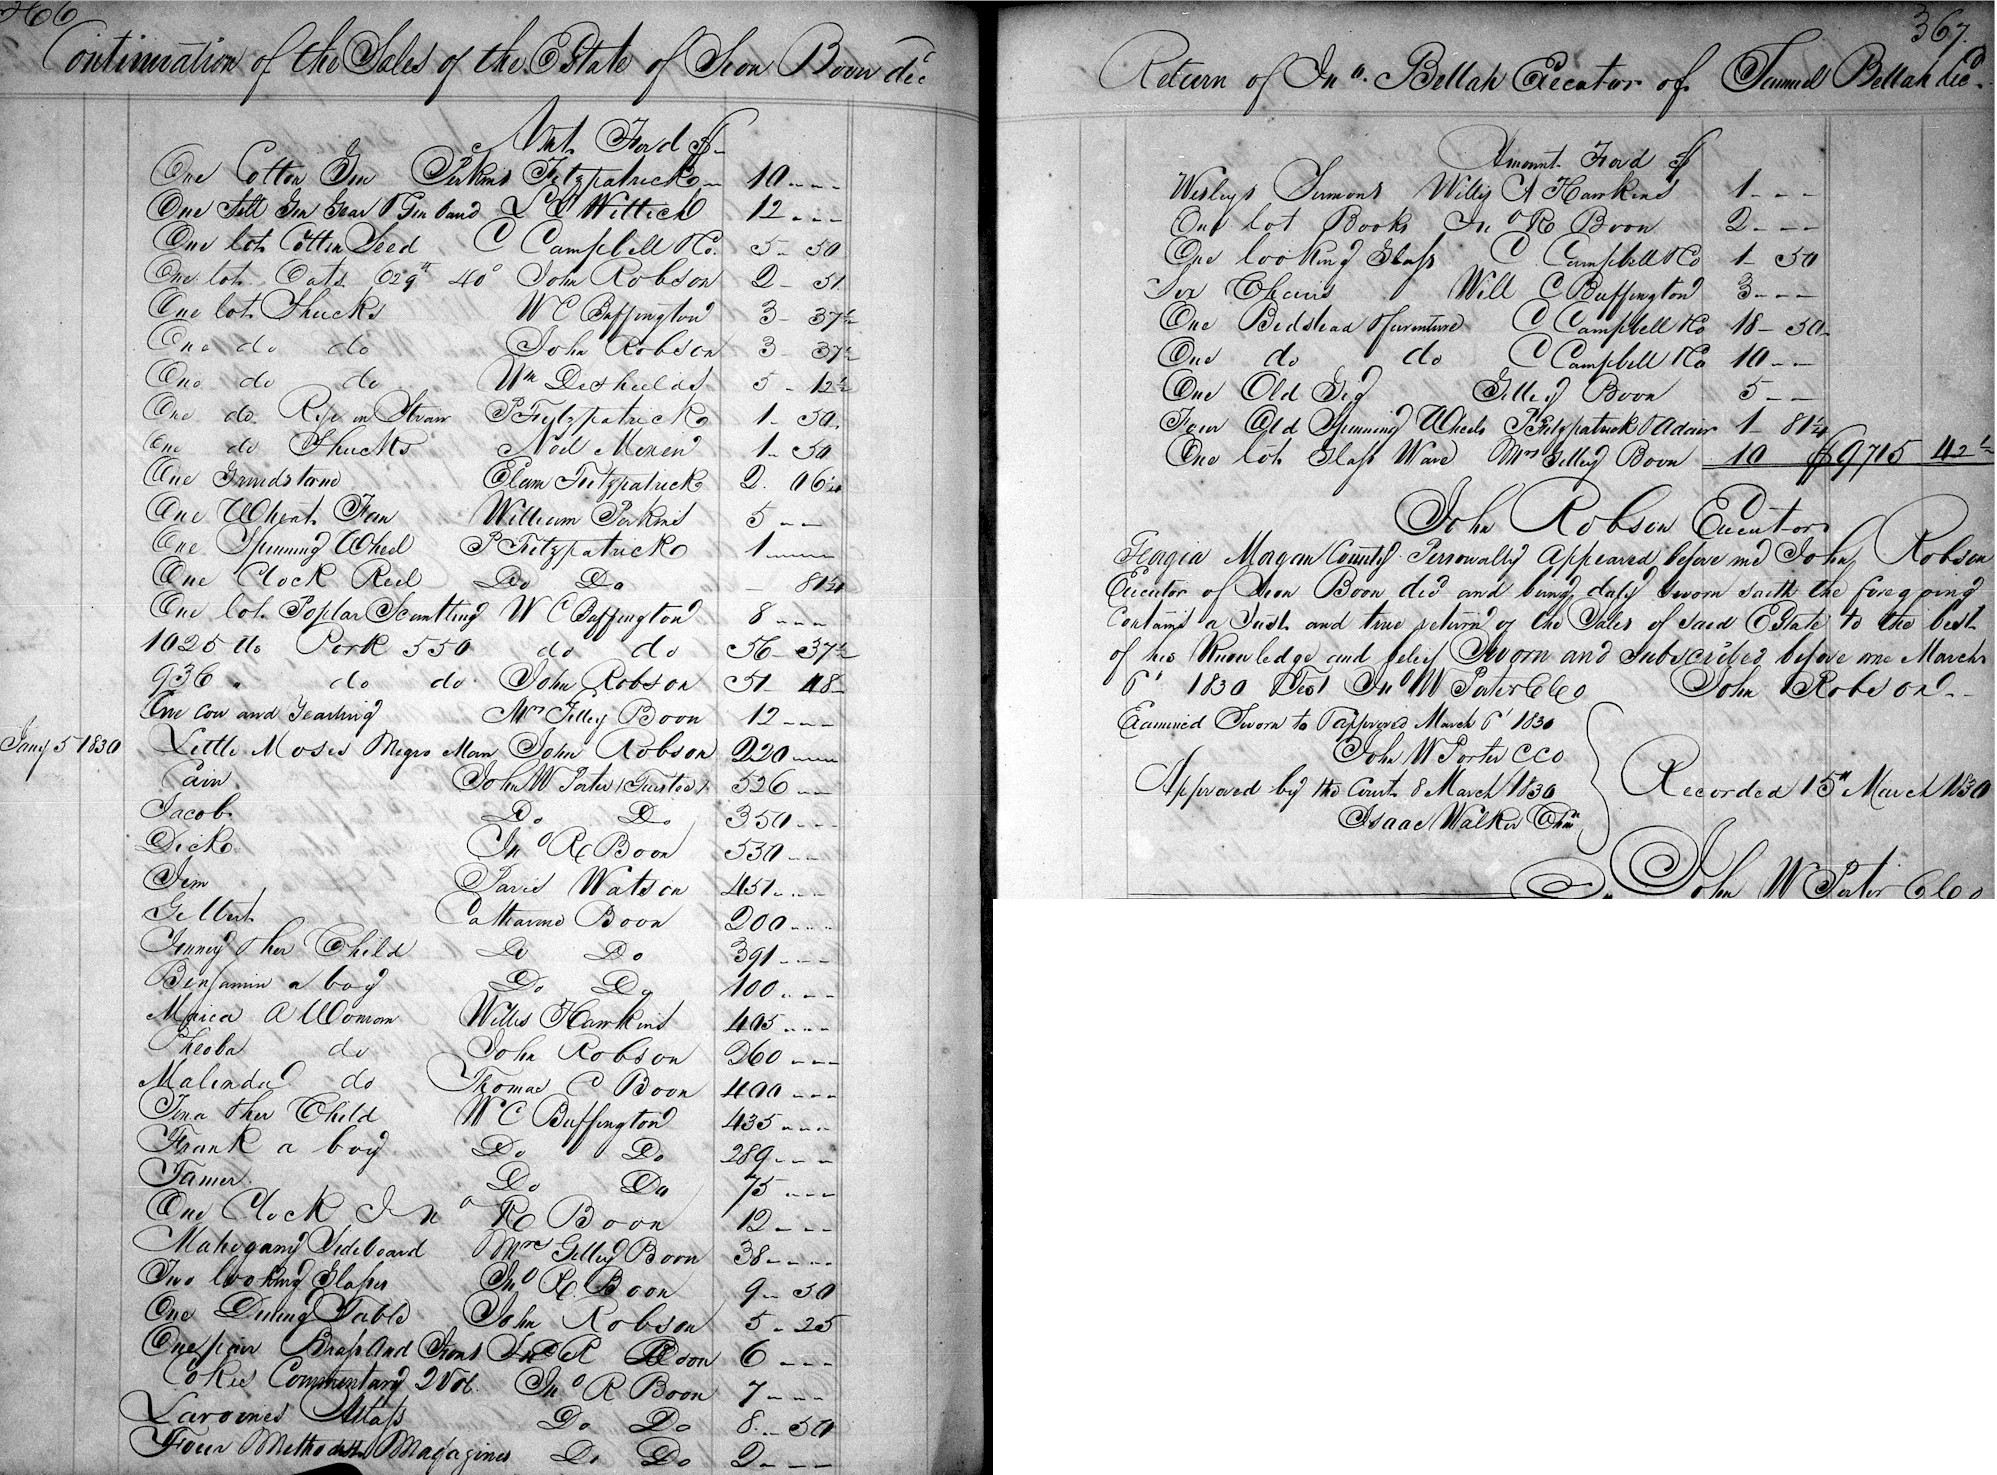 366
Continuation of the Sales of the Estate of Sion Boon decd
Amt. Ford $
One Cotton Gin Perkins Fitzpatrick 10
One Sett Gin Gear & Gin band L L Wittich 12
One lot Cotton Seed C Campbell & Co. 5 50
One lot Oats John Robson 2 51
One lot Shucks W C Buffington 3 37½
One do do John Robson 3 37½
One do do Wm Deshields 5 12½
One do Rye in Straw P Fitzpatrick 1 50
One do Shucks Noel 1 50
One Grindstone Elam Fitzpatrick 2 06¼
One Wheat Fan William Perkins 5
One Spinning Wheel P Fitzpatrick 1
One Clock Reel Do Do 81¼
One lot Poplar Scantling W C Buffington 8
1025 lb Pork 550 do do 56 37½
936 " do do John Robson 51 48
One Cow and Yearling Mrs Gilley Boon 12
Jany 5 1830 Little Moses Negro Man John Robson 220
Cain John W Porter (Trustee) 526
Jacob Do Do 350
Dick Jno R Boon 530
Jim Paris Watson 451
Gilbert Catharine Boon 200
Jenney & her Child Do Do 391
Benjamin a boy Do Do 100
Mrica A Woman Willis Hawkins 405
Pheoba do John Robson 260
Malinda do Thomas C Boon 400
Tena & her Child W C Buffington 435
Frank a boy Do Do 289
Tamer Do Do 75
One Clock Jno R Boon 12
Mahogany Sideboard Mrs Gilley Boon 38
Two looking Glasses Jno R. Boon 9 50
One Dining Table John Robson 5 25
One pair Brass And Irons Jno R Boon 6
Cokes Commentary 2 Vol. Jno R Boon 7
Lavoines Atlass Do Do 8 50
Four Methodist Magazines Do Do 2
367
Return of Jno. Bellah Executor of Samuel Bellah decd.
Amount Ford $
Wesleys Sermons Willis A Hawkins 1
One lot Books Jno R Boon 2
One looking Glass C Campbell & Co 1 50
Six Chairs Will C Buffington 3
One Bedstead & furniture C Campbell & Co 18 50
One do do C Campbell & Co 10
One Old Gig Gilley Boon 5
Four Old Spinning Wheels P Fitzpatrick & Adair 1 81¼
One lot Glass Ware Mrs Gilley Boon 10 $9715 42½
John Robson Executor
Georgia Morgan County Personally Appeared before me John Robson
Executor of Sion Boon decd and being duly Sworn saith the foregoing
Contains a Just and true return of the Sales of said Estate to the best
of his Knowledge and belief Sworn and subscribed before me March
1' 1830 Test Jno W Porter C C O John Robson
Examined Sworn to & approved March 1' 1830
John W Porter C C O
Approved by the Court 8 March 1830 Recorded 15th March 1830
Isaac Walker Chmn
John W Porter C C O